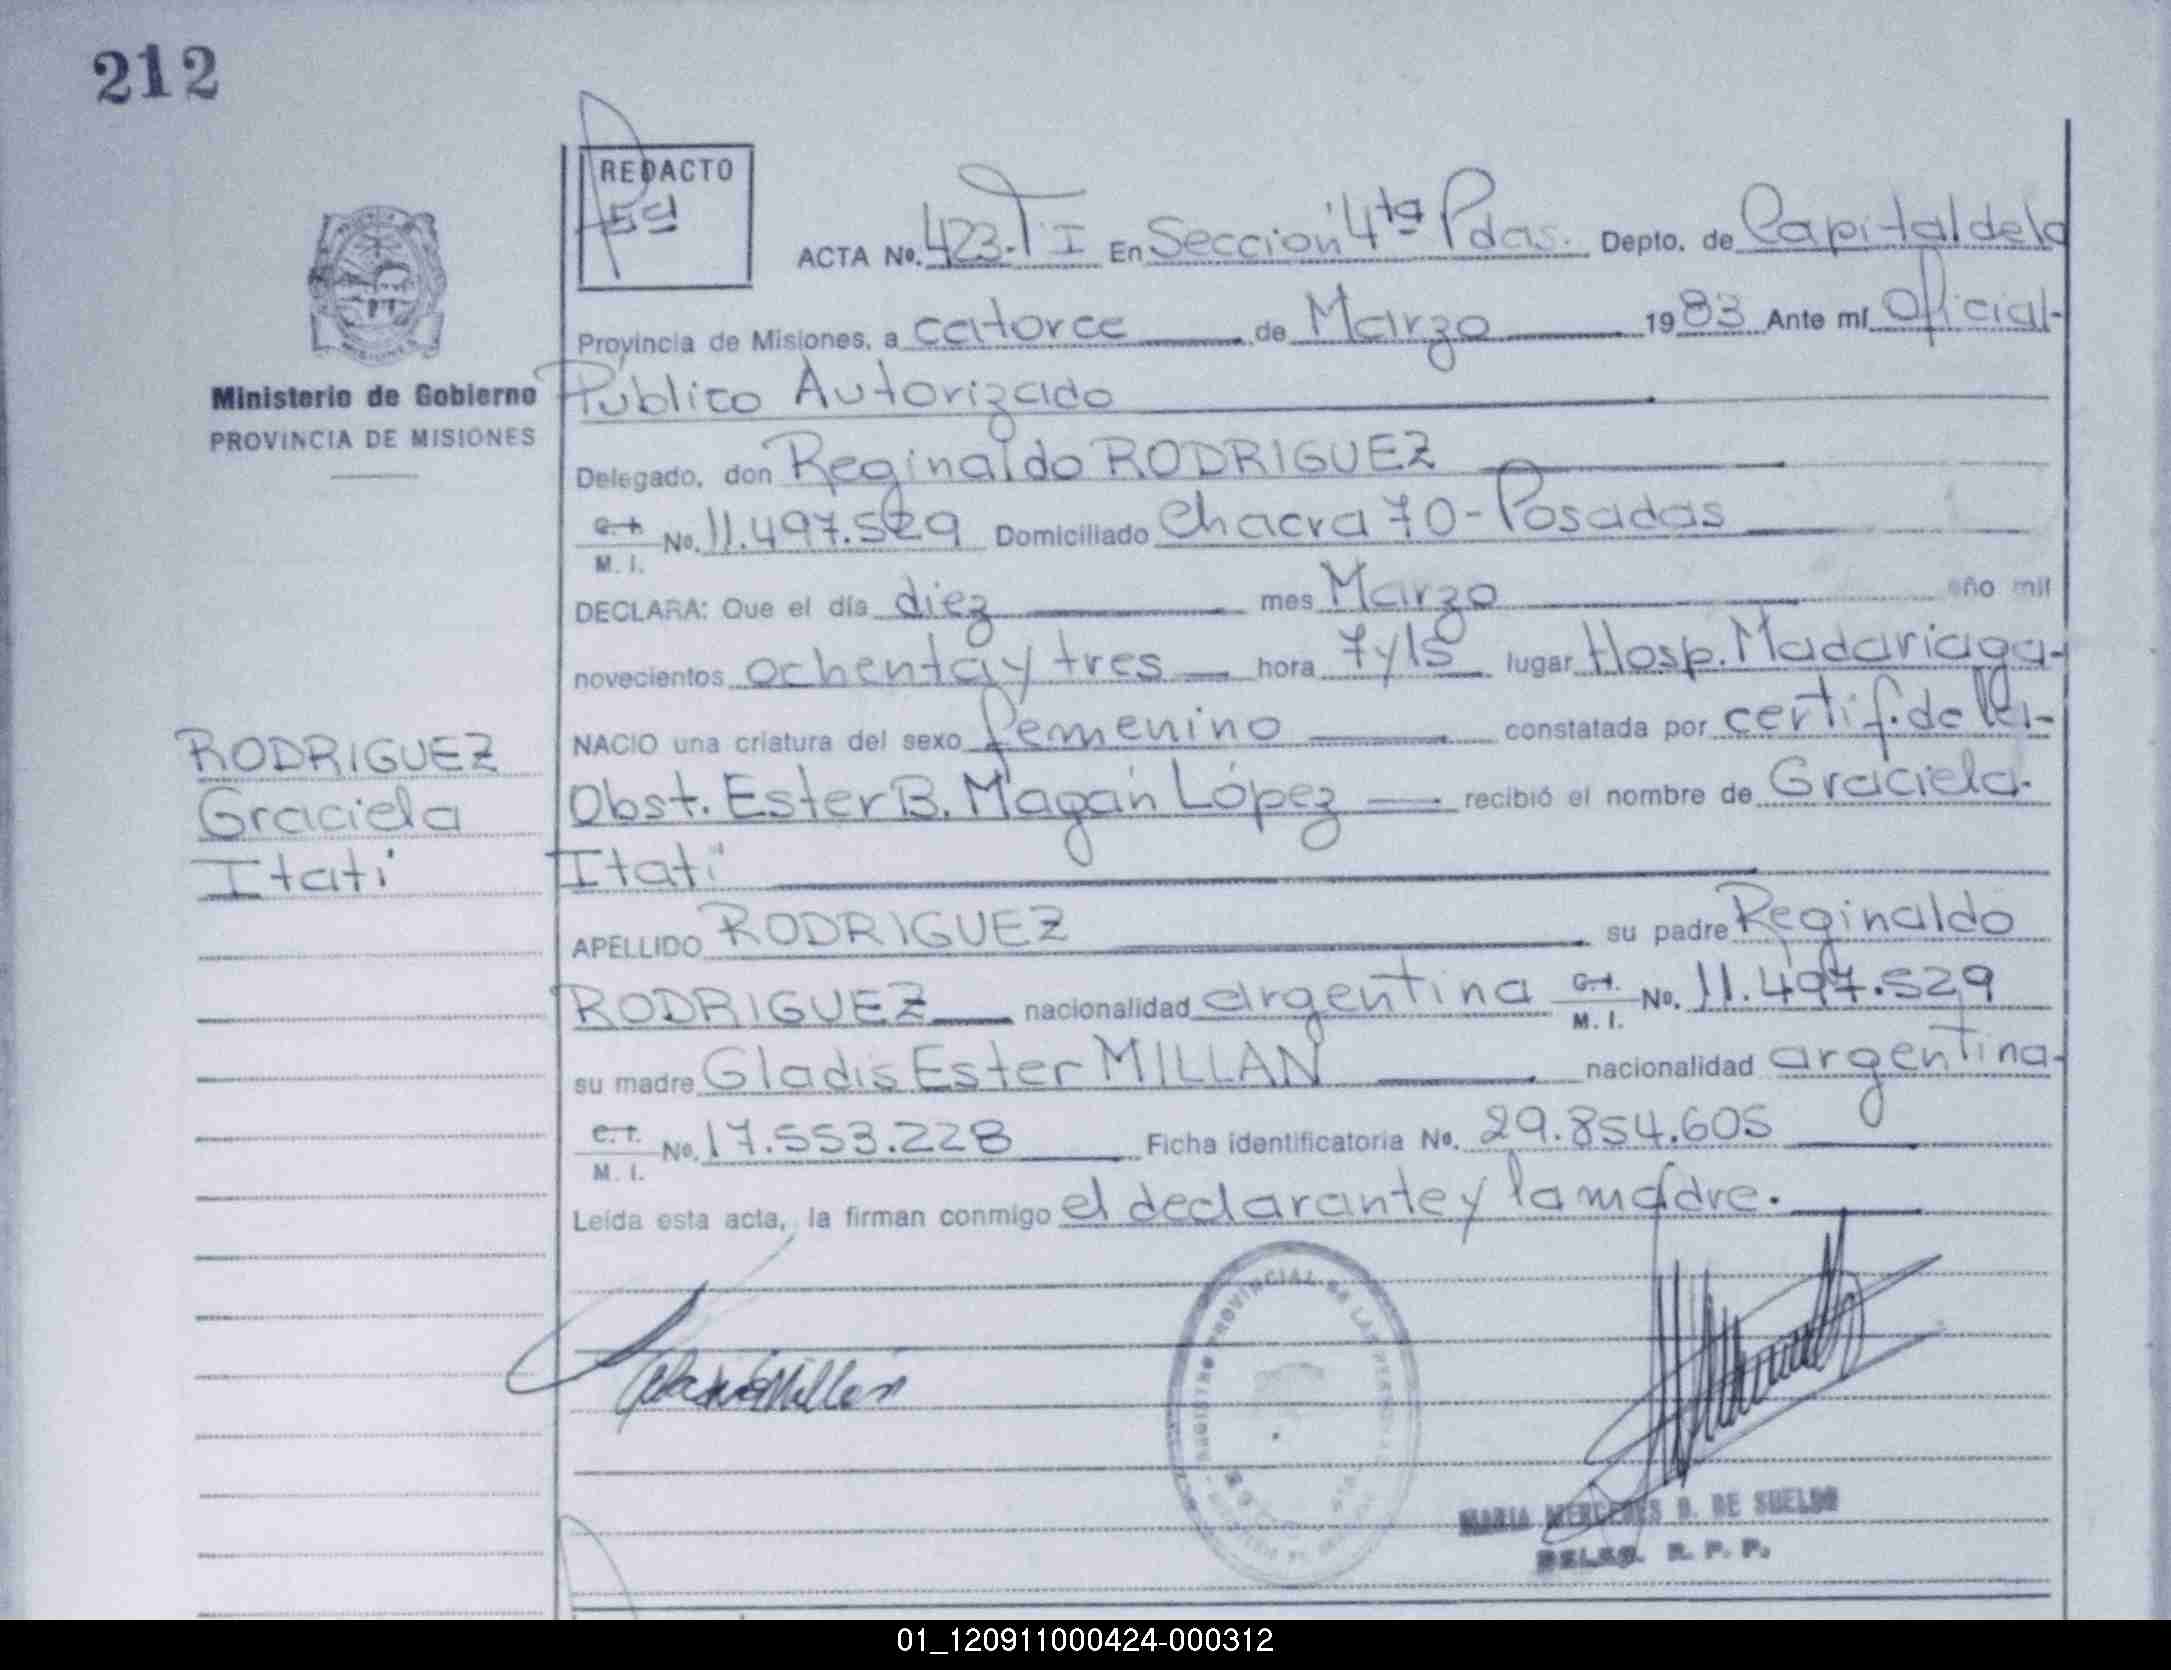 212
REDACTO
ACTA Nº. 423. T I En Sección 4ta Pdas. Depto. de Capital de la
Provincia de Misiones, a catorce de Marzo 1983 Ante mí Oficial-
Ministerio de Gobierno
PROVINCIA DE MISIONES
Público Autorizado
Delegado, don Reginaldo RODRIGUEZ
C. I.
M. I.
No. 11.497.529 Domiciliado Chacra 70 - Posadas
DECLARA: Que el día diez mes Marzo año mil
novecientos ochenta y tres hora 7 y 15 lugar Hosp. Madariaga-
NACIO una criatura del sexo femenino constatada por certif. de la-
Obst. Ester B. Magán López recibió el nombre de Graciela-
Itatí
RODRIGUEZ
Graciela
Itatí
APELLIDO RODRIGUEZ su padre Reginaldo
RODRIGUEZ nacionalidad argentina C. I. M. I. No. 11.497.529
su madre Gladis Ester MILLAN nacionalidad argentina-
C. I.
M. I.
No. 17.553.228 Ficha identificatoria No. 29.854.605
Leída esta acta, la firman conmigo el declarante y la madre.
REGISTRO PROVINCIAL DE LAS PERSONAS
MARIA MERCEDES B. DE SUELDO
DELEG. R. P. P.
01_120911000424-000312